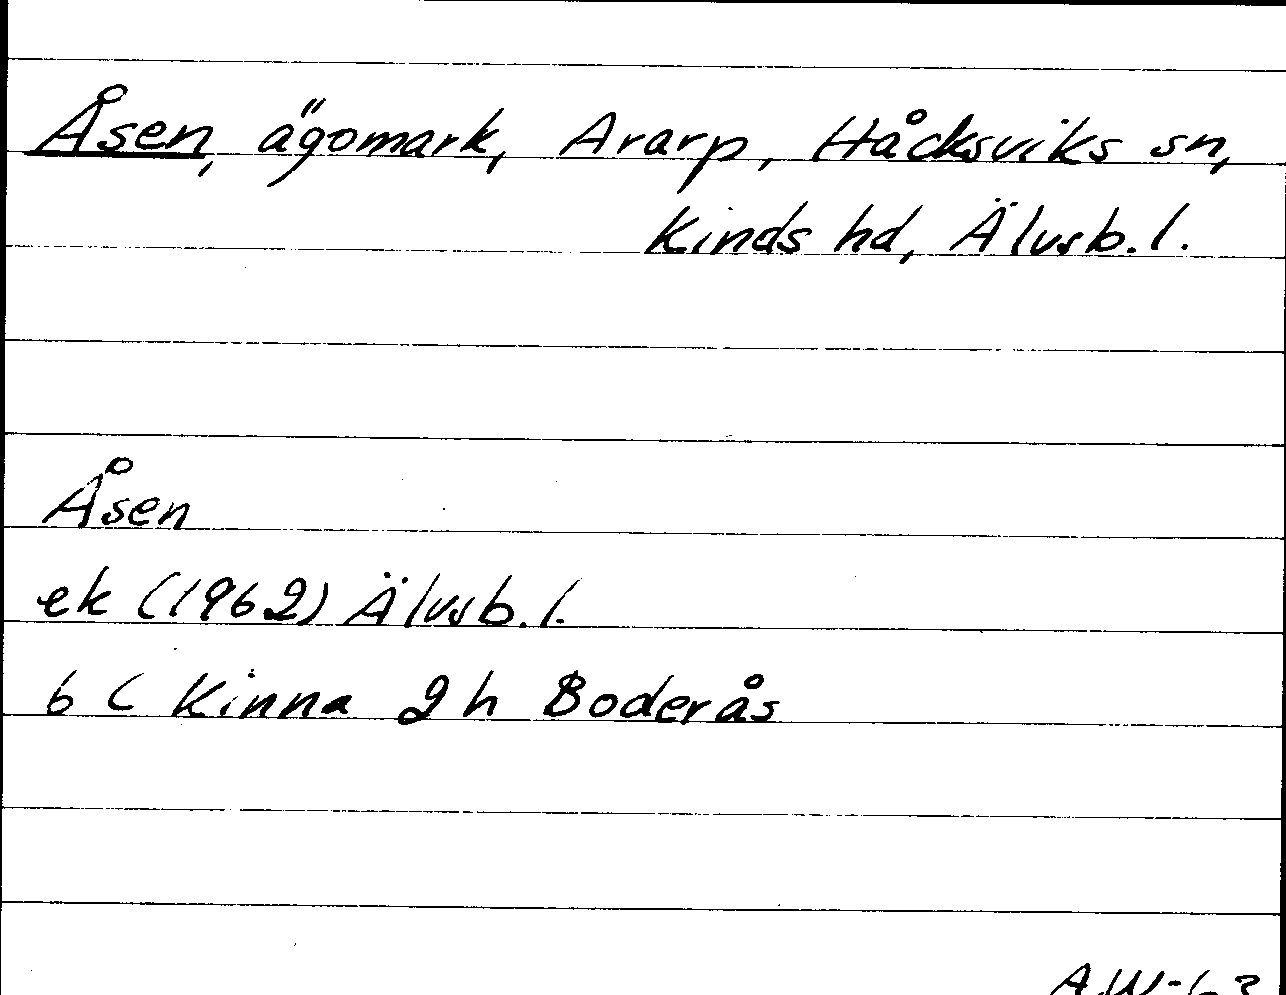 Åsen, ägomark, Ararp, Håcksviks sn,
Kinds hd, Älvsb.l.
Åsen
ek (1962) Älvsb.l.
6 C Kinna 2 h Boderås